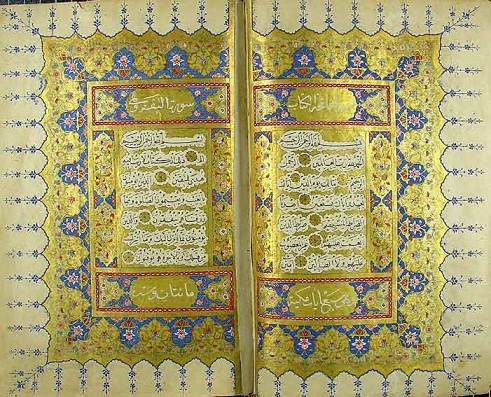 سورة فاتحة الكتاب
بسم الله الرحمن الرحيم
الحمد لله رب العالمين
الرحمن الرحيم مالك يوم الدين اياك
نعبد واياك نستعين اهدنا
الصراط المستقيم صراط
الذين انعمت عليهم غير المغضوب
عليهم ولا الضالين
سورة البقرة
بسم الله الرحمن الرحيم
الم ذلك الكتاب لا ريب فيه
هدى للمتقين الذين يؤمنون
بالغيب ويقيمون الصلوة ومما
رزقناهم ينفقون والذين
يؤمنون بما انزل اليك وما انزل
من قبلك وبالاخرة هم يوقنون
مائتان